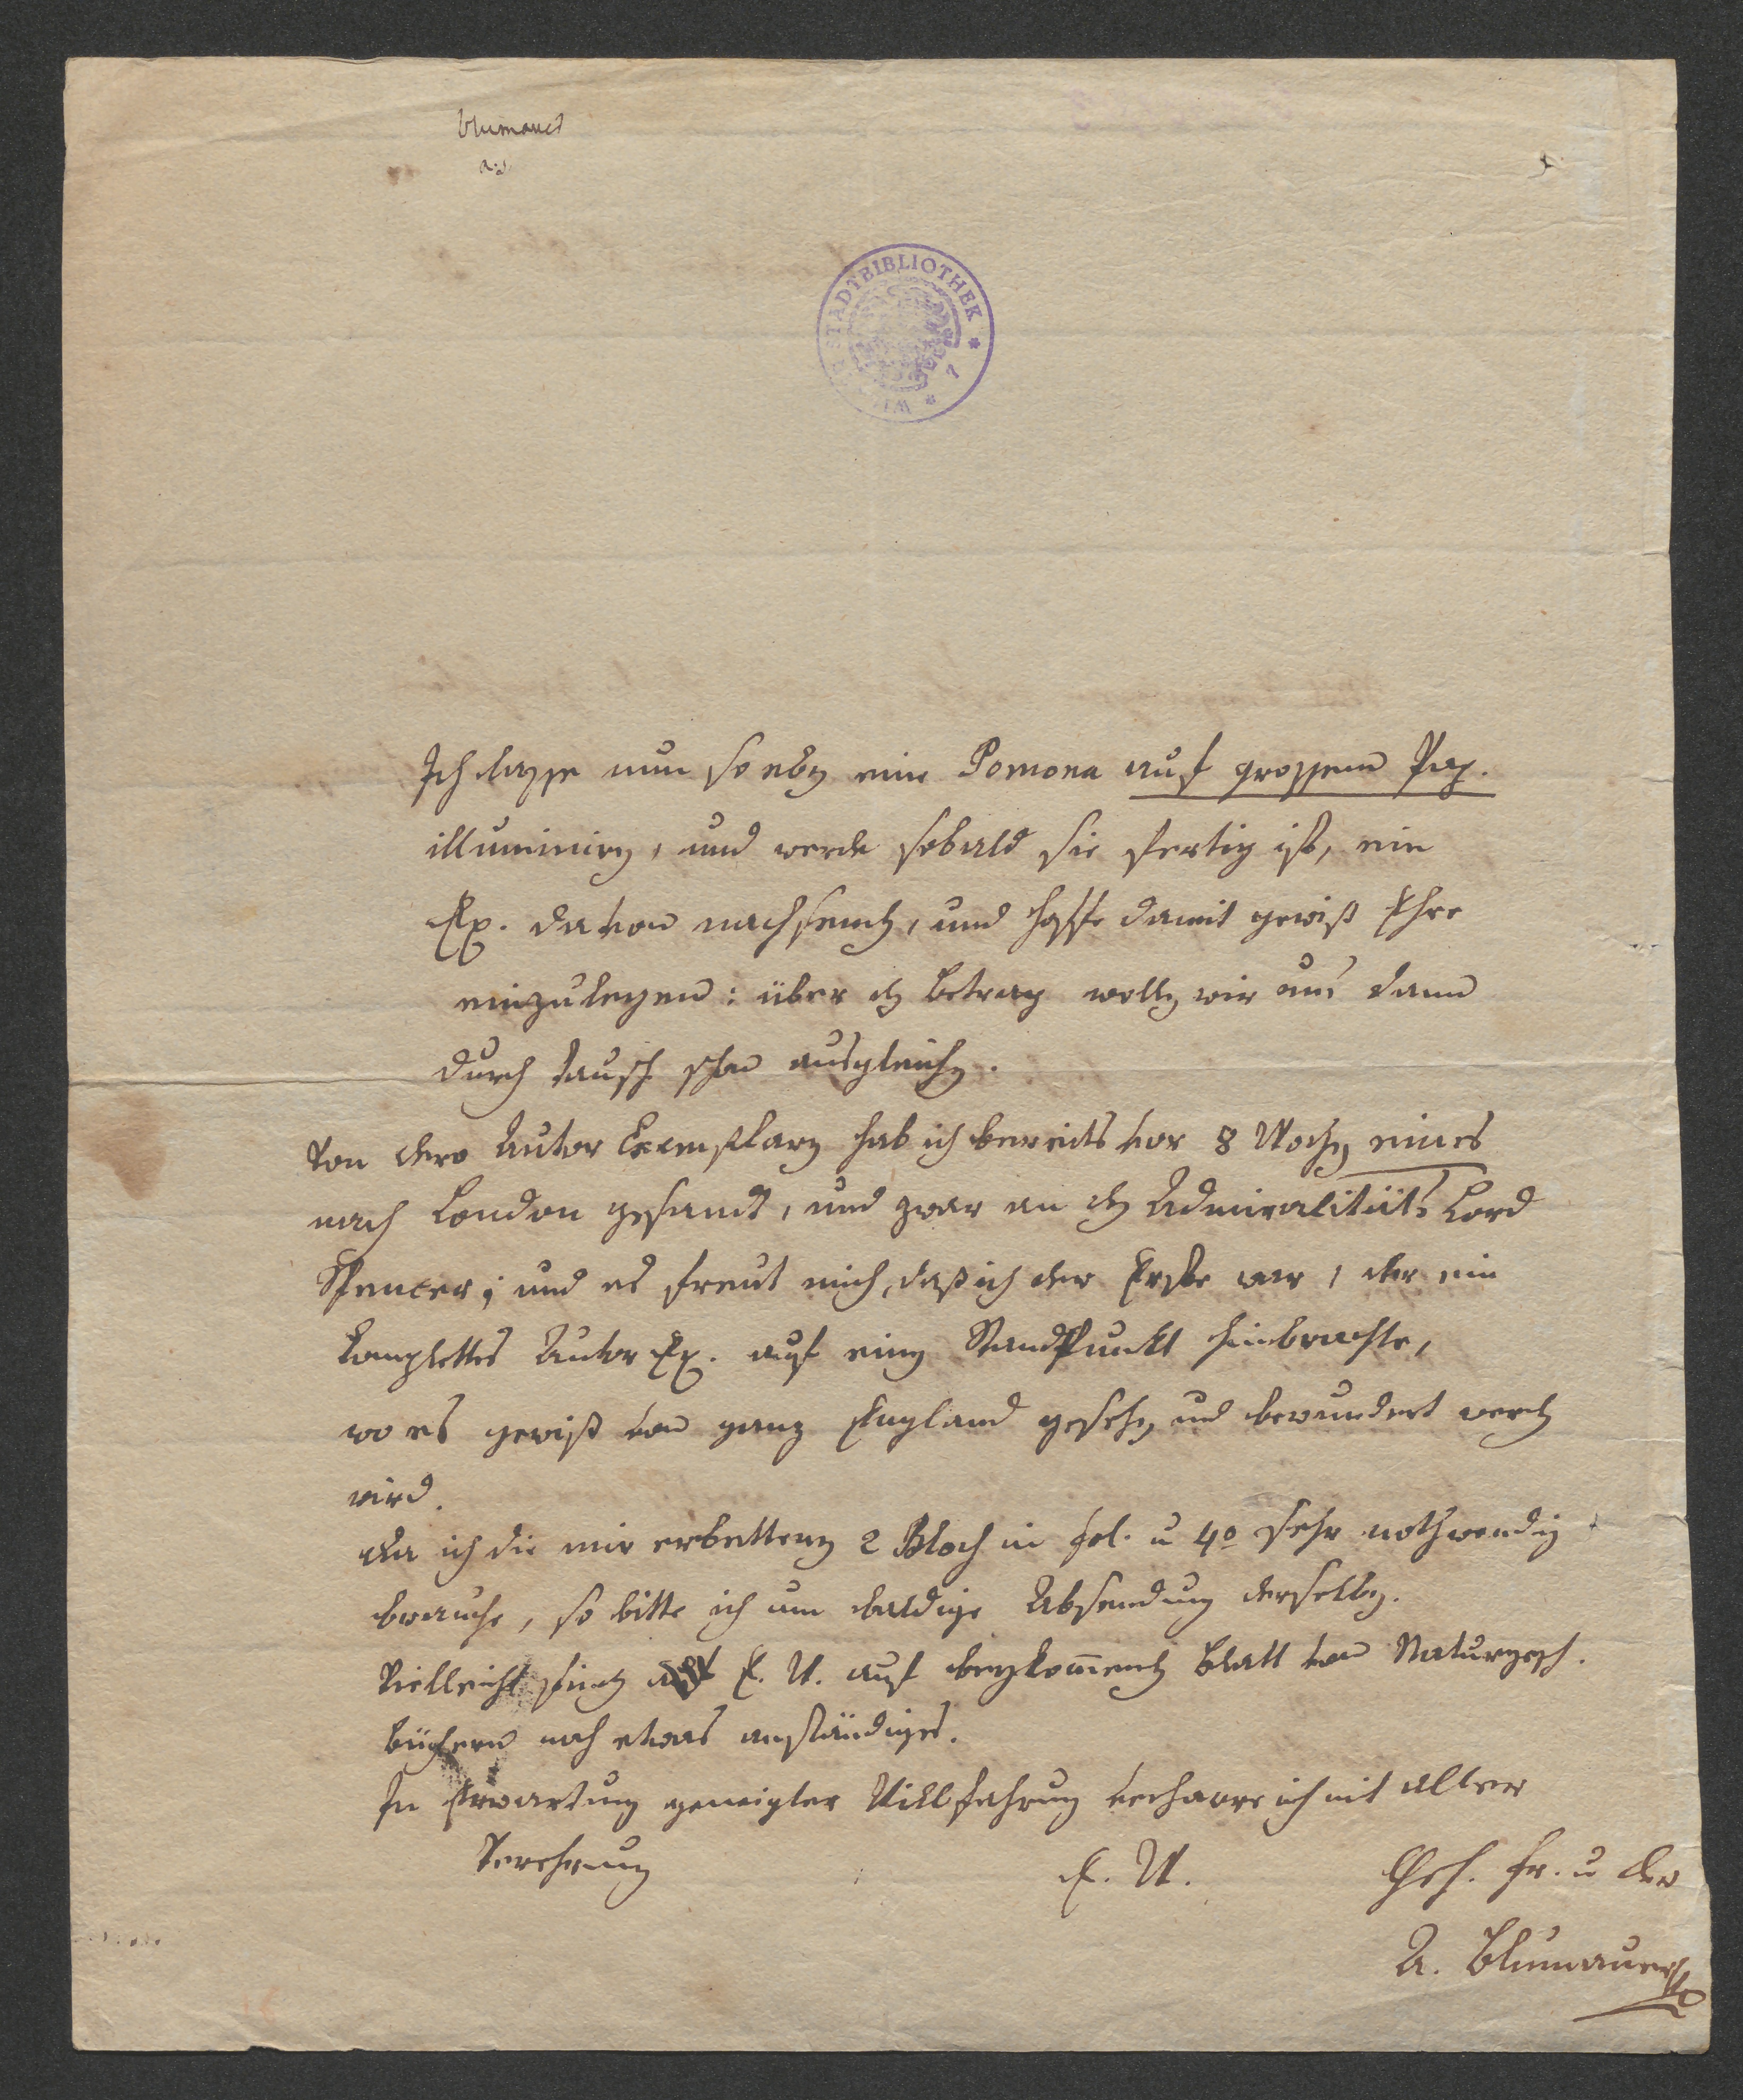 Blumauer
a.
WIENER STADTBIBLIOTHEK
Ich lasse nun so eben eine Pomona auf grossem Pap.
illuminiren, und werde sobald sie fertig ist, ein
Ex. davon nachsenden, und hoffe damit gewiß Ehre
einzulegen: über den Betrag wollen wir uns dann
durch Tausch schon ausgleichen.
Von dero Autor Exemplaren hab ich bereits vor 8 Wochen eines
nach London gesandt, und zwar an den Admiralitäts Lord
Spencer; und es freut mich, daß ich der Erste war, der ein
komplettes Autor Ex. auf einen Standpunkt hinbrachte,
wo es gewiß von ganz England gesehen und bewundert werden
wird.
Da ich die mir erbettenen 2 Bloch in fol. u 4o sehr nothwendig
brauche, so bitte ich um baldige Absendung derselben.
Vielleicht finden E. W. auf beykom̅enden Blatt von Naturgesch.
büchern noch etwas anständiges.
In Erwartung geneigter Willfahrung verharre ich mit aller
Verehrung E. W. Geh. Fr. u Dr
A. Blumauer